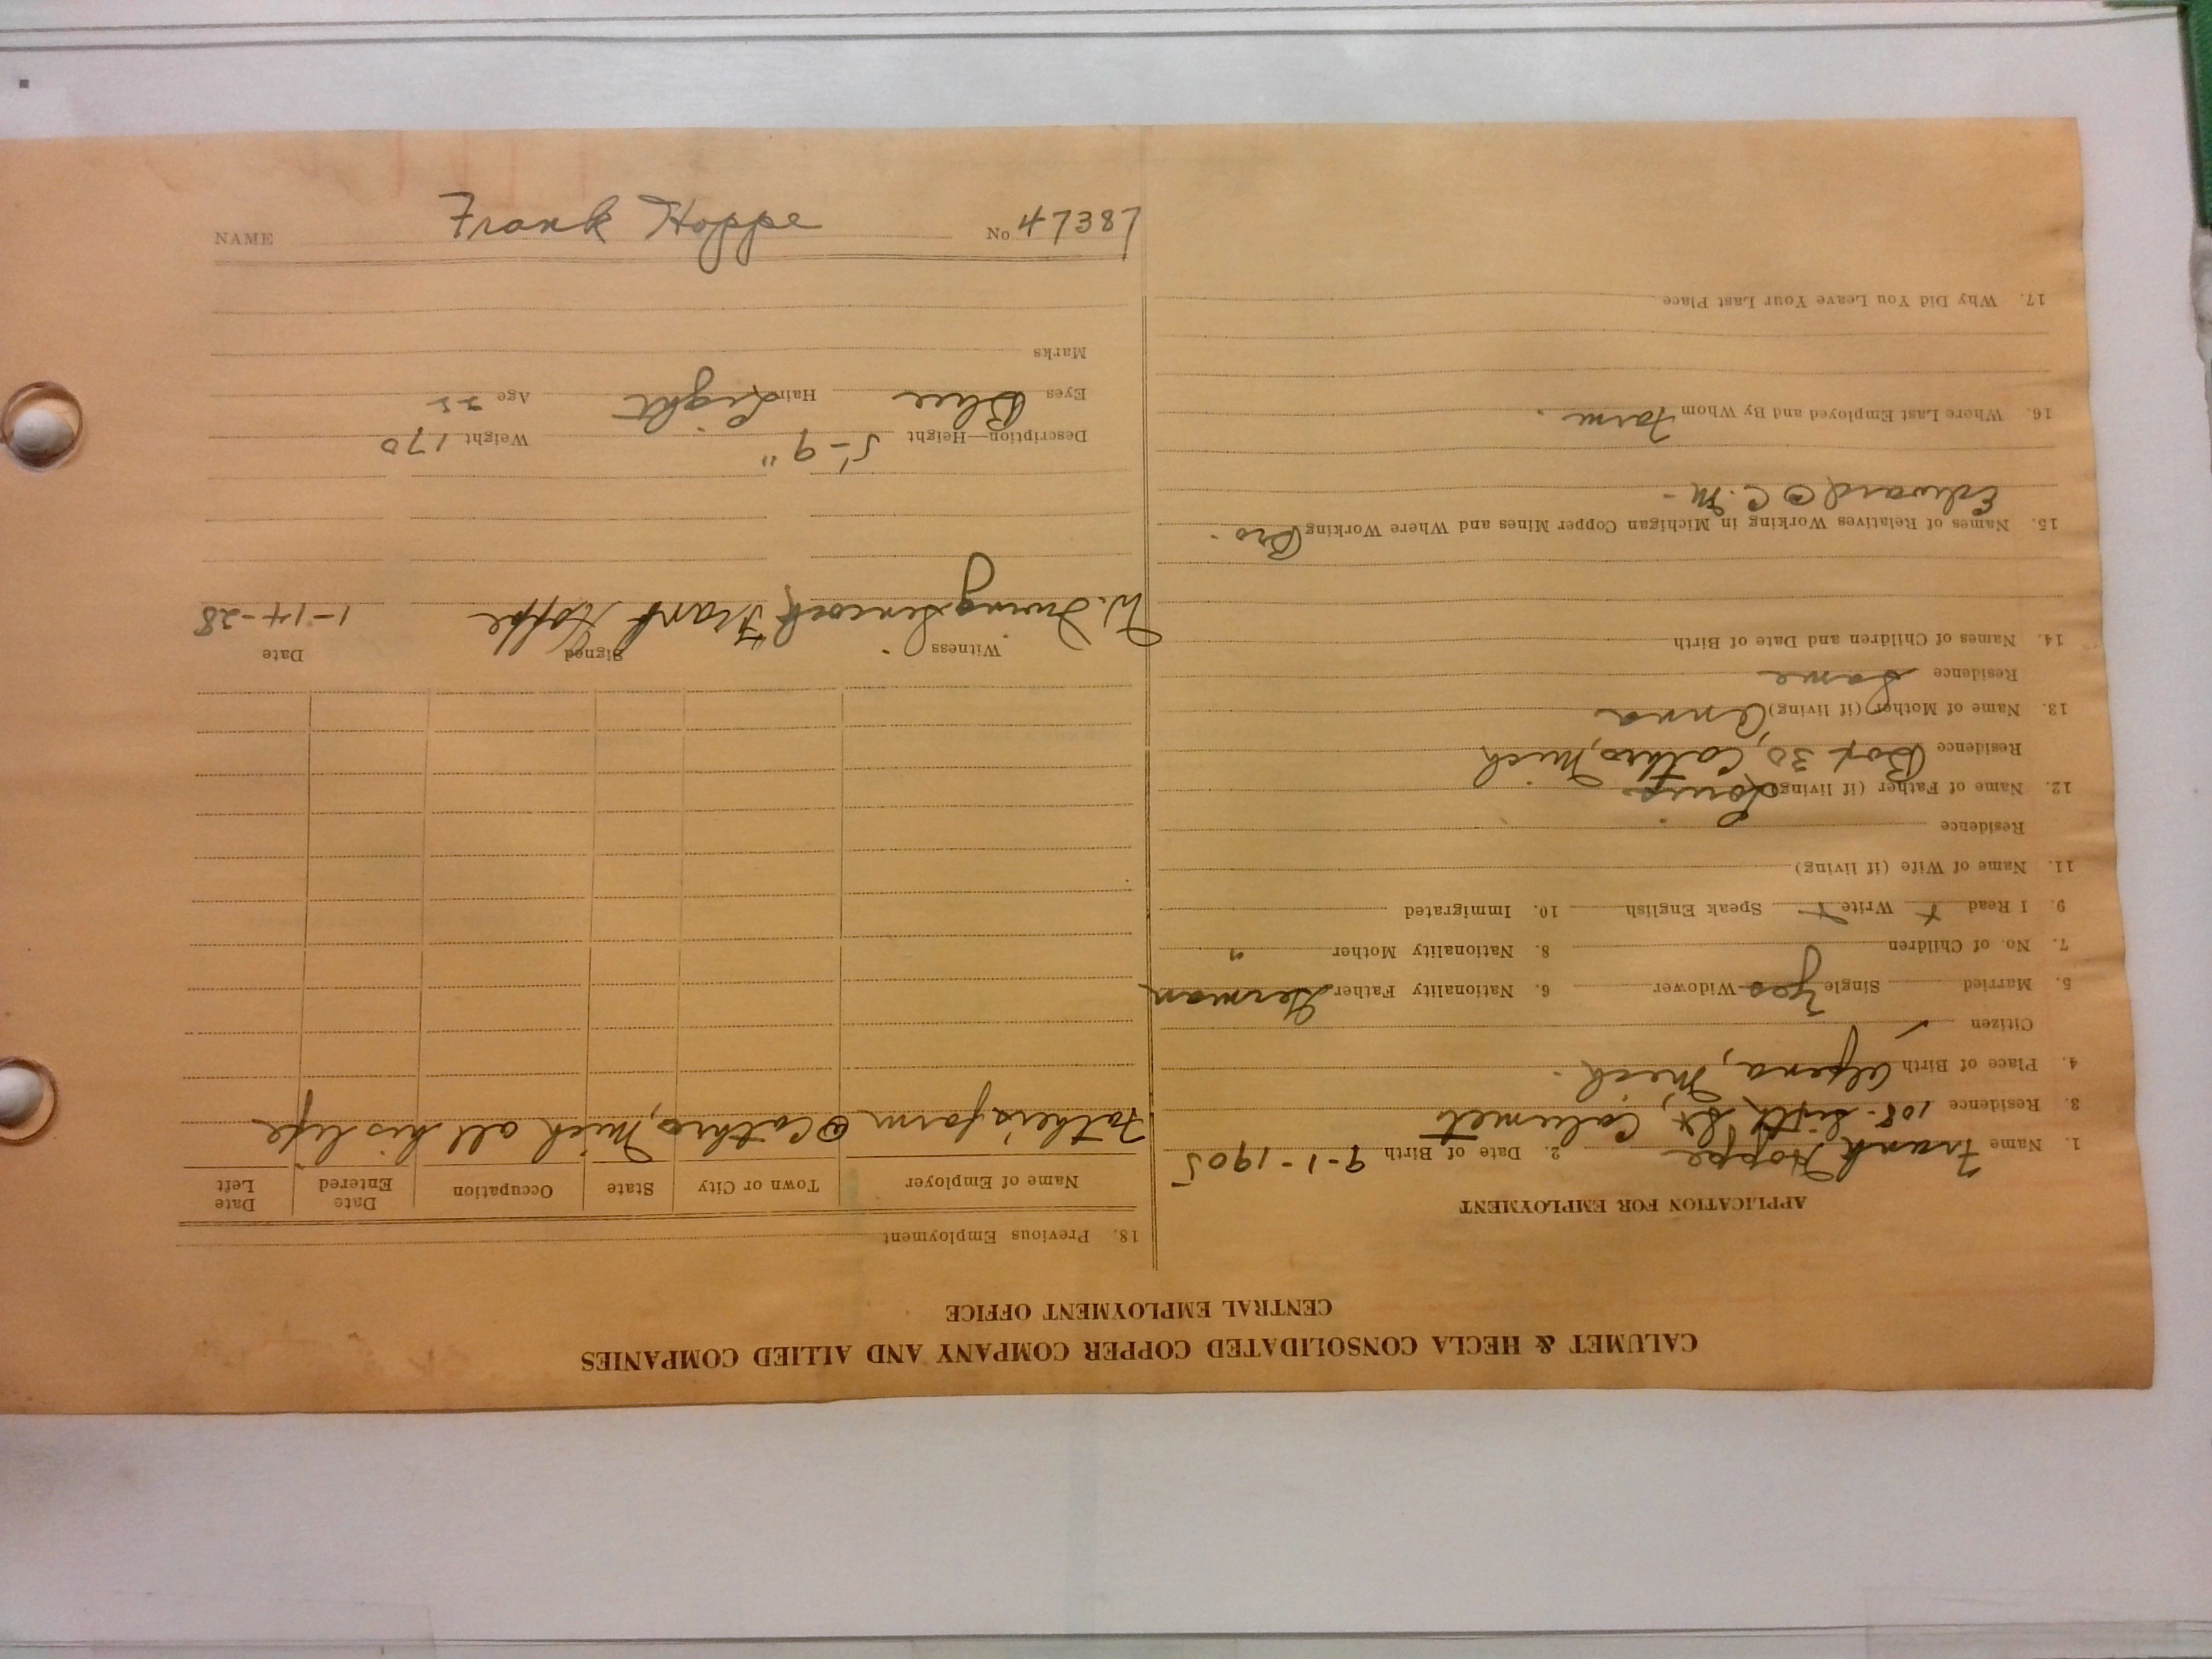 CALUMET & HECLA CONSOLIDATED COPPER COMPANY AND ALLIED COMPANIES
CENTRAL EMPLOYMENT OFFICE
APPLICATION FOR EMPLOYMENT
1. Name Frank Hoppe 2. Date of Birth 9-1-1905
3. Residence 108- Sixth St, Calumet
4. Place of Birth Alpena, Mich.
Citizen ✓
5. Married Single Yes Widower 6. Nationality Father German
7. No. of Children 8. Nationality Mother "
9. I Read + Write + Speak English 10. Immigrated
11. Name of Wife (if living)
Residence
12. Name of Father (if living) Louis
Residence Box 30, Cathro, Mich
13. Name of Mother (if living) Anna
Residence Same
14. Names of Children and Date of Birth
15. Names of Relatives Working in Michigan Copper Mines and Where Working Bro.
Edward @ C. M-
16. Where Last Employed and By Whom Farm.
17. Why Did You Leave Your Last Place
18. Previous Employment
Name of Employer Town or City State Occupation Date Entered Date Left
Father's farm @ Cathro, Mich all his life
Witness Signed Date
W. Irving Frank Hoppe 1-14-28
Description—Height 5'-9" Weight 170
Eyes Blue Hair Light Age 22
Marks
NAME Frank Hoppe No 47387